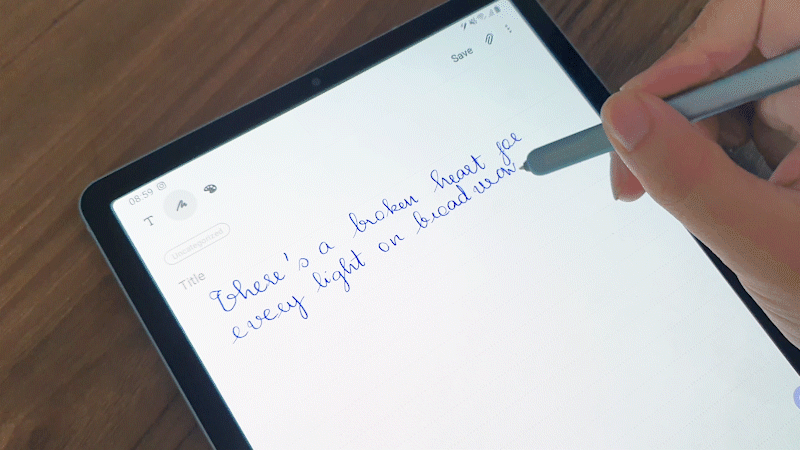 08:59
Save
T
Uncategorized
Title
There's a broken heart for
every light on broadwa